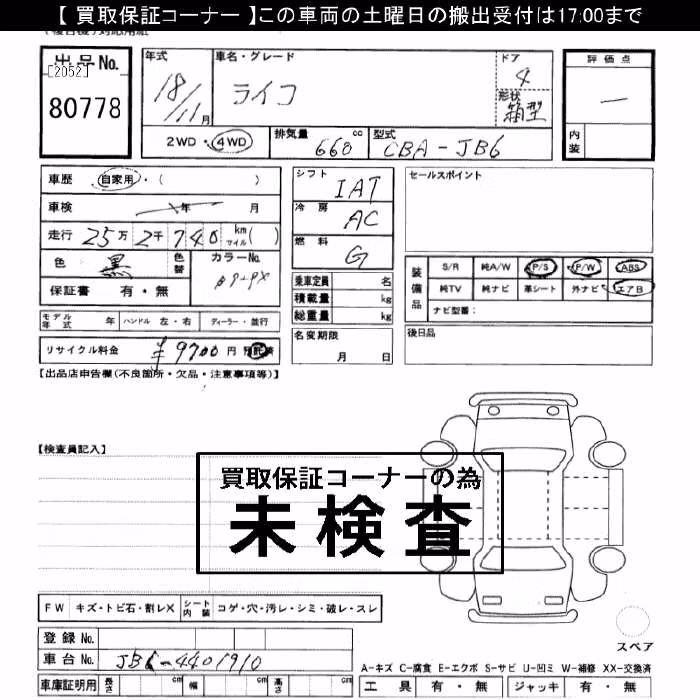 【 買取保証コーナー 】この車両の土曜日の搬出受付は17:00まで
出品No. [2052] 80778
年式 18/11月
車名・グレード ライコ
ドア 4
形状 箱型
評価点 一
内装
2WD・4WD
排気量 660 cc
型式 CBA-JB6
車歴 自家用・( )
車検 年 月
走行 25万2千740 km マイル( )
色 黒 色替 カラーNo.
保証書 有・無
モデル年式 年 ハンドル 左・右 ディーラー・並行
リサイクル料金 ¥9700円 預託済
シフト IAT
冷房 AC
燃料 G
乗車定員 名
積載量 kg
総重量 kg
名変期限 月 日
セールスポイント
装備品 S/R 純A/W P/S P/W ABS
純TV 純ナビ 革シート 外ナビ エアB
ナビ型番:
後日品
【出品店申告欄(不良箇所・欠品・注意事項等)】
【検査員記入】
買取保証コーナーの為
未検査
FW キズ・トビ石・割レX シート内装 コゲ・穴・汚レ・シミ・破レ・スレ
登録No.
車台No. JB6-4401910
車庫証明用 長さ cm 幅 cm 高さ cm
スペア
A-キズ C-腐食 E-エクボ S-サビ U-凹ミ W-補修 XX-交換済
工具 有・無 ジャッキ 有・無